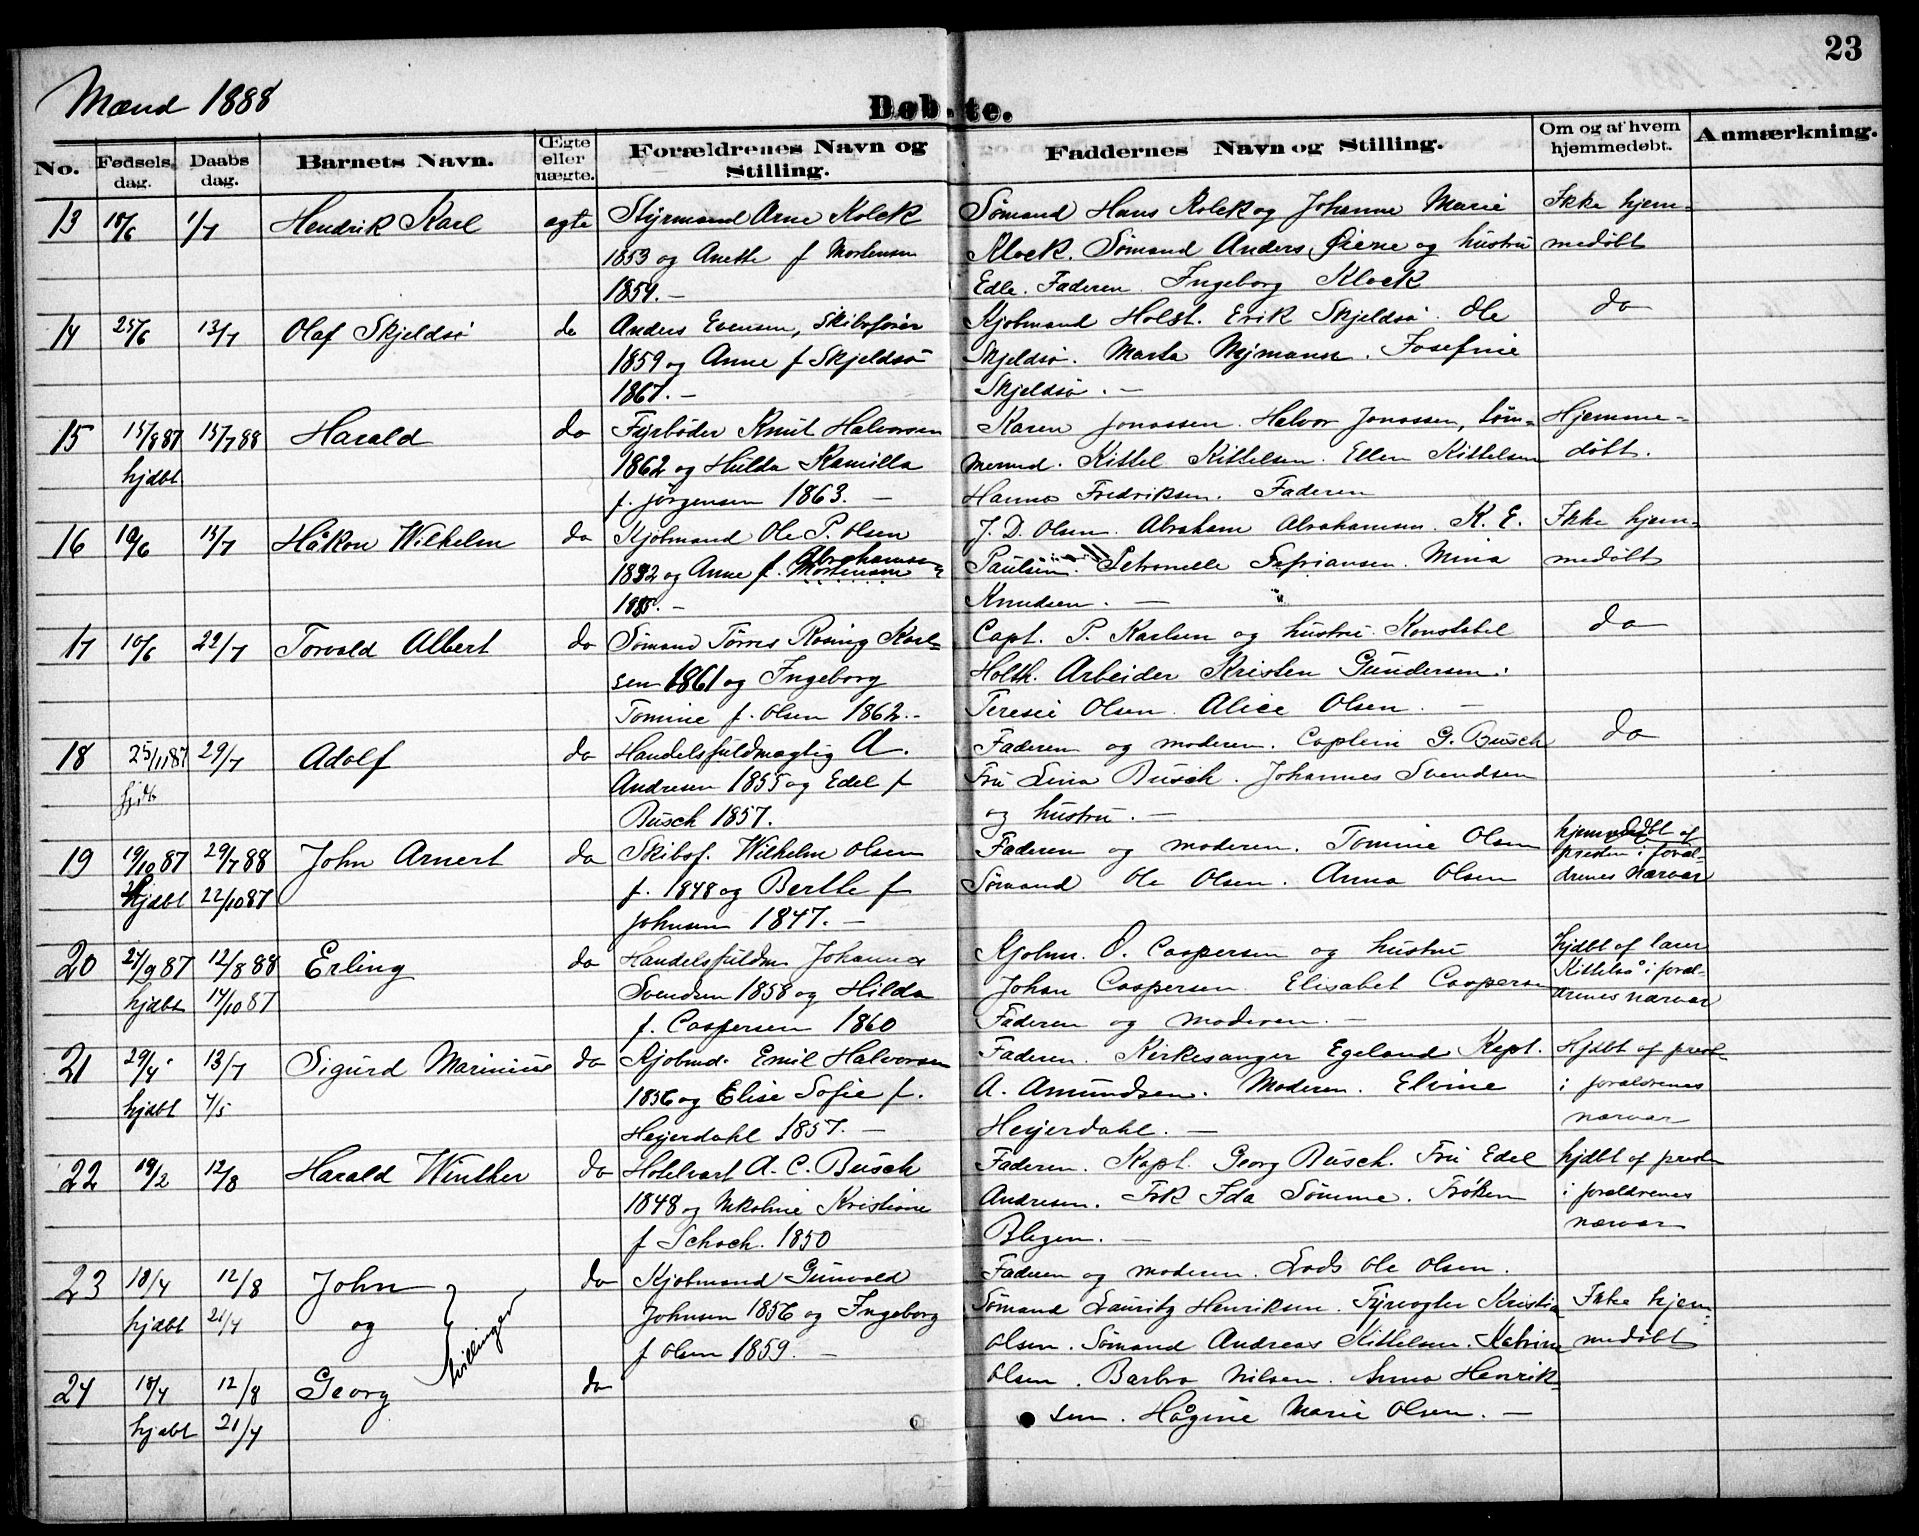 23
Mænd 1888
Døbte.
No.
Fødsels dag.
Daabs dag.
Barnets Navn.
Œgte eller uægte.
Forældrenes Navn og Stilling.
Faddernes Navn og Stilling.
Om og af hvem hjemmedøbt.
Anmærkning.
13 18/6 1/7 Hendrik Karl egte Styrmand Arne Kolck Sømand Hans Kolck og Johanne Marie Ikke hjem-
1853 og Anette f Mortensen Klock. Sømand Anders Øiene og hustru medøbt
1859. — Edle. Faderen. Ingeborg Klock
14 25/6 13/7 Olaf Skjeldsø do Anders Evensen, Skibsfører Kjøbmand Holst. Erik Skjeldsø. Ole do
1859 og Anne f Skjeldsø Skjeldsø. Marta Nymann. Josefine
1867. — Skjeldsø. —
15 15/9 87 15/7 88 Harald do Fyrbøder Knut Halvorsen Karen Jonassen. Halvor Jonassen, Tøm- Hjemme-
hjdbt 1862 og Hulda Kamilla mermd. Kittel Kittelsen. Ellen Kittelsen døbt.
f. Jørgensen 1863. — Hanna Fredriksen. Faderen
16 10/6 15/7 Håkon Wilhelm do Kjøbmand Ole P. Olsen J. D. Olsen. Abraham Abrahamsen. K. E. Ikke hjem-
1832 og Anne f. Abrahamsen Paulsen. Petronelle Sefriansen. Mina medøbt
1885. — Knudsen. —
17 10/6 22/7 Torvald Albert do Sømand Tørres Rosing Karl- Capt. P. Karlsen og hustru. Konstabel do
sen 1861 og Ingeborg Holth. Arbeider Kristen Gundersen.
Tomine f. Olsen 1862. - Teresie Olsen. Alice Olsen. —
18 25/11 87 29/7 Adolf do Handelsfuldmægtig A. Faderen og moderen. Captein G. Busch do
Andresen 1855 og Edel f Fru Lina Busch. Johannes Svendsen
Busch 1857. og hustru. —
19 19/10 87 29/7 88 John Arnert do Skibsf. Wilhelm Olsen Faderen og moderen. Tomine Olsen hjemmedøbt af
hjdbt 22/10 87 f. 1848 og Berthe f Sømand Ole Olsen. Anna Olsen presten i foræl-
Johnsen 1847. — drenes nærvær
20 27/9 87 12/8 88 Erling do Handelsfuldm Johannes Kjøbm. O. Caspersen og hustru hjdbt af lærer
hjdbt 14/10 87 Svendsen 1858 og Hilda Johan Caspersen. Elisabet Caspersen Kittelså i foræl-
f. Caspersen 1860 Faderen og moderen. — drenes nærvær
21 29/4 13/7 Sigurd Marinius do Kjøbmd. Emil Halvorsen Faderen. Kirkesanger Egeland Kapt. Hjdbt af prest
hjdbt 7/5 1856 og Elise Sofie f. A. Amundsen. Moderen. Elvine i forældrenes
Heyerdahl 1857. — Heyerdahl. — nærvær
22 19/2 12/8 Harald Winther do Hotelvært A. C. Busch Faderen. Kapt. Georg Busch. Fru Edel hjdbt af prest
1848 og Nikoline Kristiane Andresen. Frk Ida Sømme. Frøken i forældrenes
f Schoch. 1850 Blegen. — nærvær
23 18/4 12/8 John do Kjøbmand Gunvald Faderen og moderen. Lods Ole Olsen.
hjdbt 21/4 og tvillinger Johnsen 1856 og Ingeborg Sømand Lauritz Henriksen. Fyrvogter Kristia Ikke hjem-
f Olsen 1859. — Olsen. Sømand Andreas Kittelsen. Katrine medøbt
24 18/4 12/8 Georg do Olsen. Barbro Nilsen. Anna Henrik-
hjdbt 21/4 sen. Hågine Marie Olsen. —